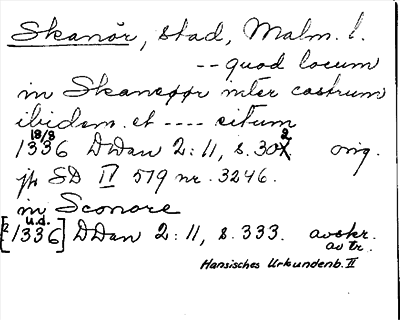 Skanör, stad, Malm. l.
-- quod locum
in Skaneppr inter castrum
ibidem et ---- situm
18/8
1336 DDan 2:11, s. 302 orig.
jfr SD IV 579 nr. 3246.
in Sconore
u.d.
[2 1336] DDan 2:11, s. 333. avskr. av tr.
Hansisches Urkundenb. II